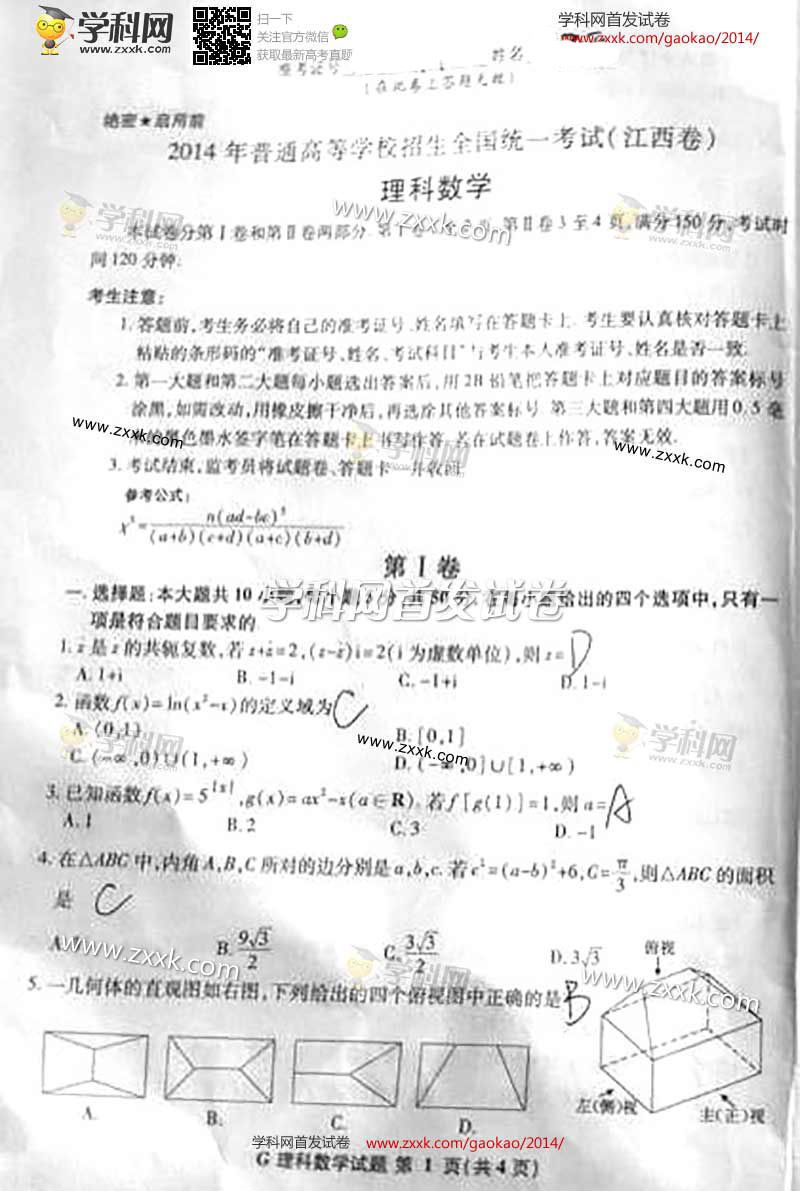 学科网
www.zxxk.com
扫一下
关注官方微信
获取最新高考真题
学科网首发试卷
www.zxxk.com/gaokao/2014/
姓名
(在此卷上答题无效)
绝密★启用前
2014年普通高等学校招生全国统一考试(江西卷)
理科数学
本试卷分第Ⅰ卷和第Ⅱ卷两部分.第Ⅰ卷 第Ⅱ卷3至4页,满分150分,考试时
间120分钟.
考生注意:
1.答题前,考生务必将自己的准考证号、姓名填写在答题卡上.考生要认真核对答题卡上
粘贴的条形码的“准考证号、姓名、考试科目”与考生本人准考证号、姓名是否一致.
2.第一大题和第二大题每小题选出答案后,用2B铅笔把答题卡上对应题目的答案标号
涂黑,如需改动,用橡皮擦干净后,再选涂其他答案标号.第三大题和第四大题用0.5毫
米的黑色墨水签字笔在答题卡上书写作答.若在试题卷上作答,答案无效.
3.考试结束,监考员将试题卷、答题卡一并收回.
参考公式:
x²=n(ad-bc)²/(a+b)(c+d)(a+c)(b+d)
第Ⅰ卷
一.选择题:本大题共10小题 给出的四个选项中,只有一
学科网首发试卷
项是符合题目要求的.
1.z̄是z的共轭复数,若z+z̄=2,(z-z̄)i=2(i为虚数单位),则z= D
A.1+i B.-1-i C.-1+i D.1-i
2.函数f(x)=ln(x²-x)的定义域为 C
A.(0,1) B.[0,1]
C.(-∞,0)∪(1,+∞) D.(-∞,0]∪[1,+∞)
3.已知函数f(x)=5^|x|,g(x)=ax²-x(a∈R).若f[g(1)]=1,则a= A
A.1 B.2 C.3 D.-1
4.在△ABC中,内角A,B,C所对的边分别是a,b,c.若c²=(a-b)²+6,C=π/3,则△ABC的面积
是 C
A. B.9√3/2 C.3√3/2 D.3√3
5.一几何体的直观图如右图,下列给出的四个俯视图中正确的是 B
俯视
左(侧)视 主(正)视
A. B. C. D.
学科网首发试卷 www.zxxk.com/gaokao/2014/
G 理科数学试题 第1页(共4页)